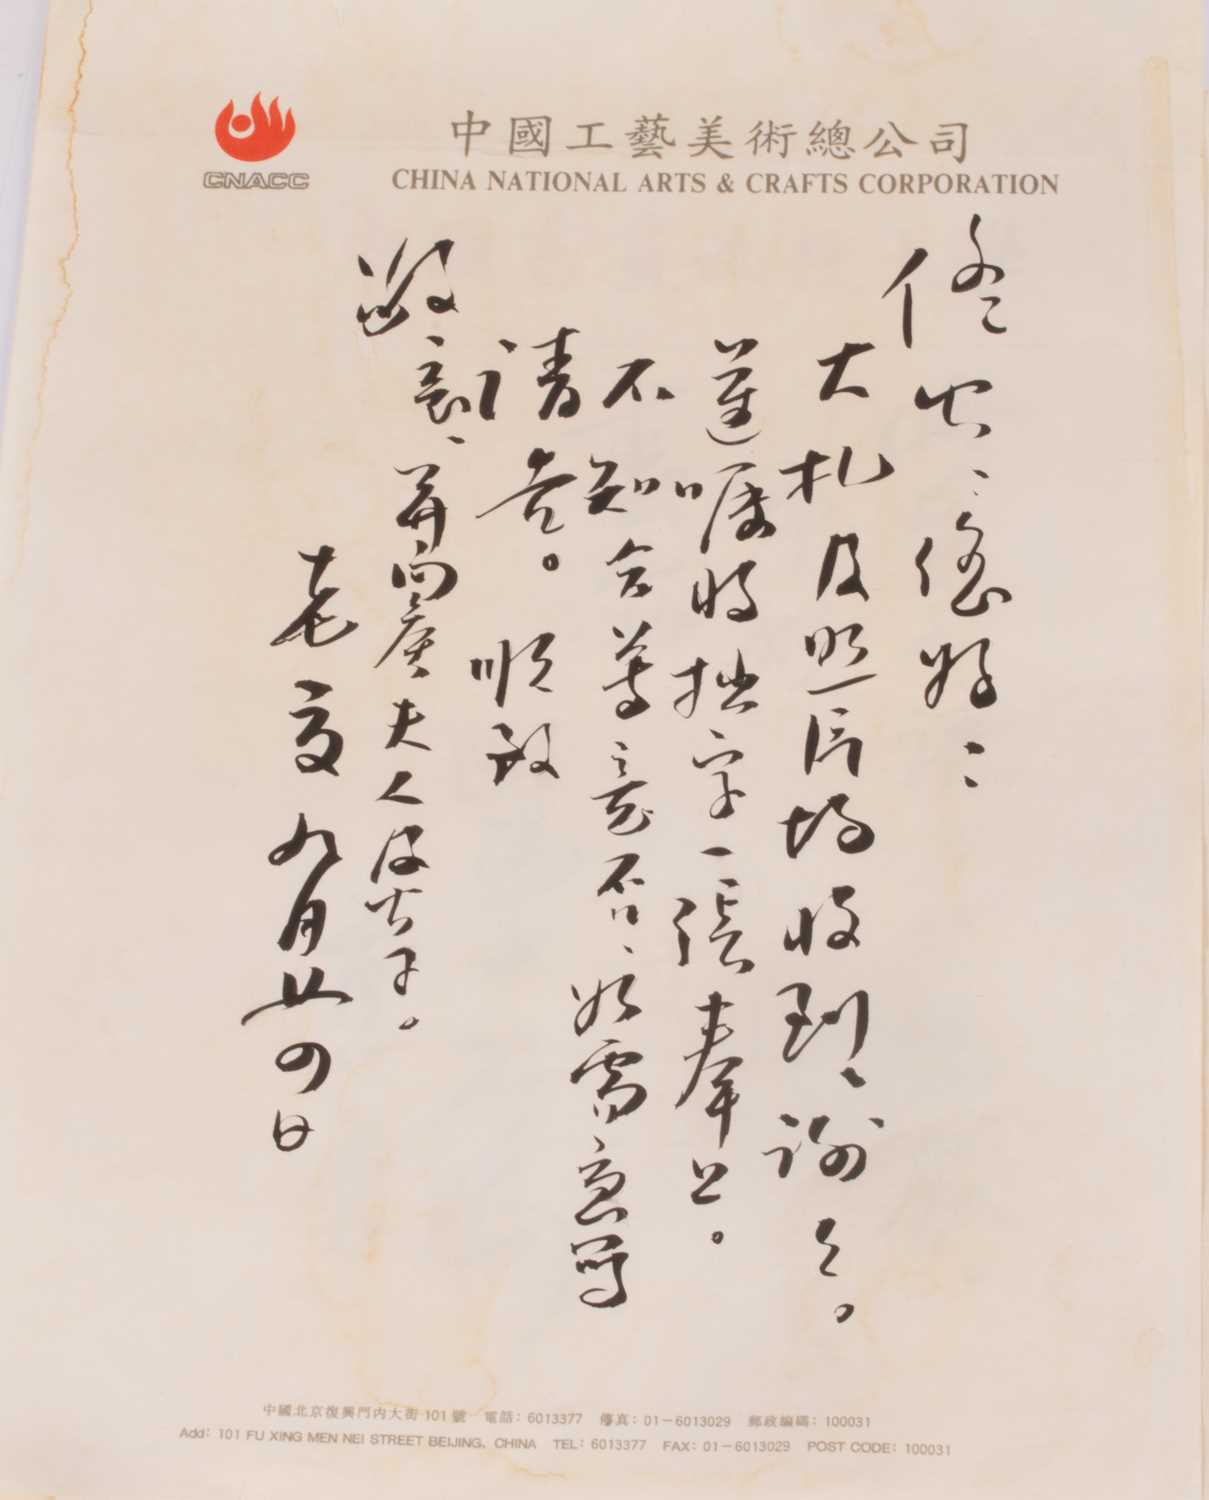 CNACC
中國工藝美術總公司
CHINA NATIONAL ARTS & CRAFTS CORPORATION
您好：
大札及照片均收到、謝之。
遵囑將拙字一張奉上。
不知合尊意否、如需重寫
請告。順致
敬意、并向 夫人及
九月廿四日
中國北京復興門内大街101號 電話：6013377 傳真：01－6013029 郵政編碼：100031
Add: 101 FU XING MEN NEI STREET BEIJING, CHINA TEL: 6013377 FAX: 01－6013029 POST CODE: 100031